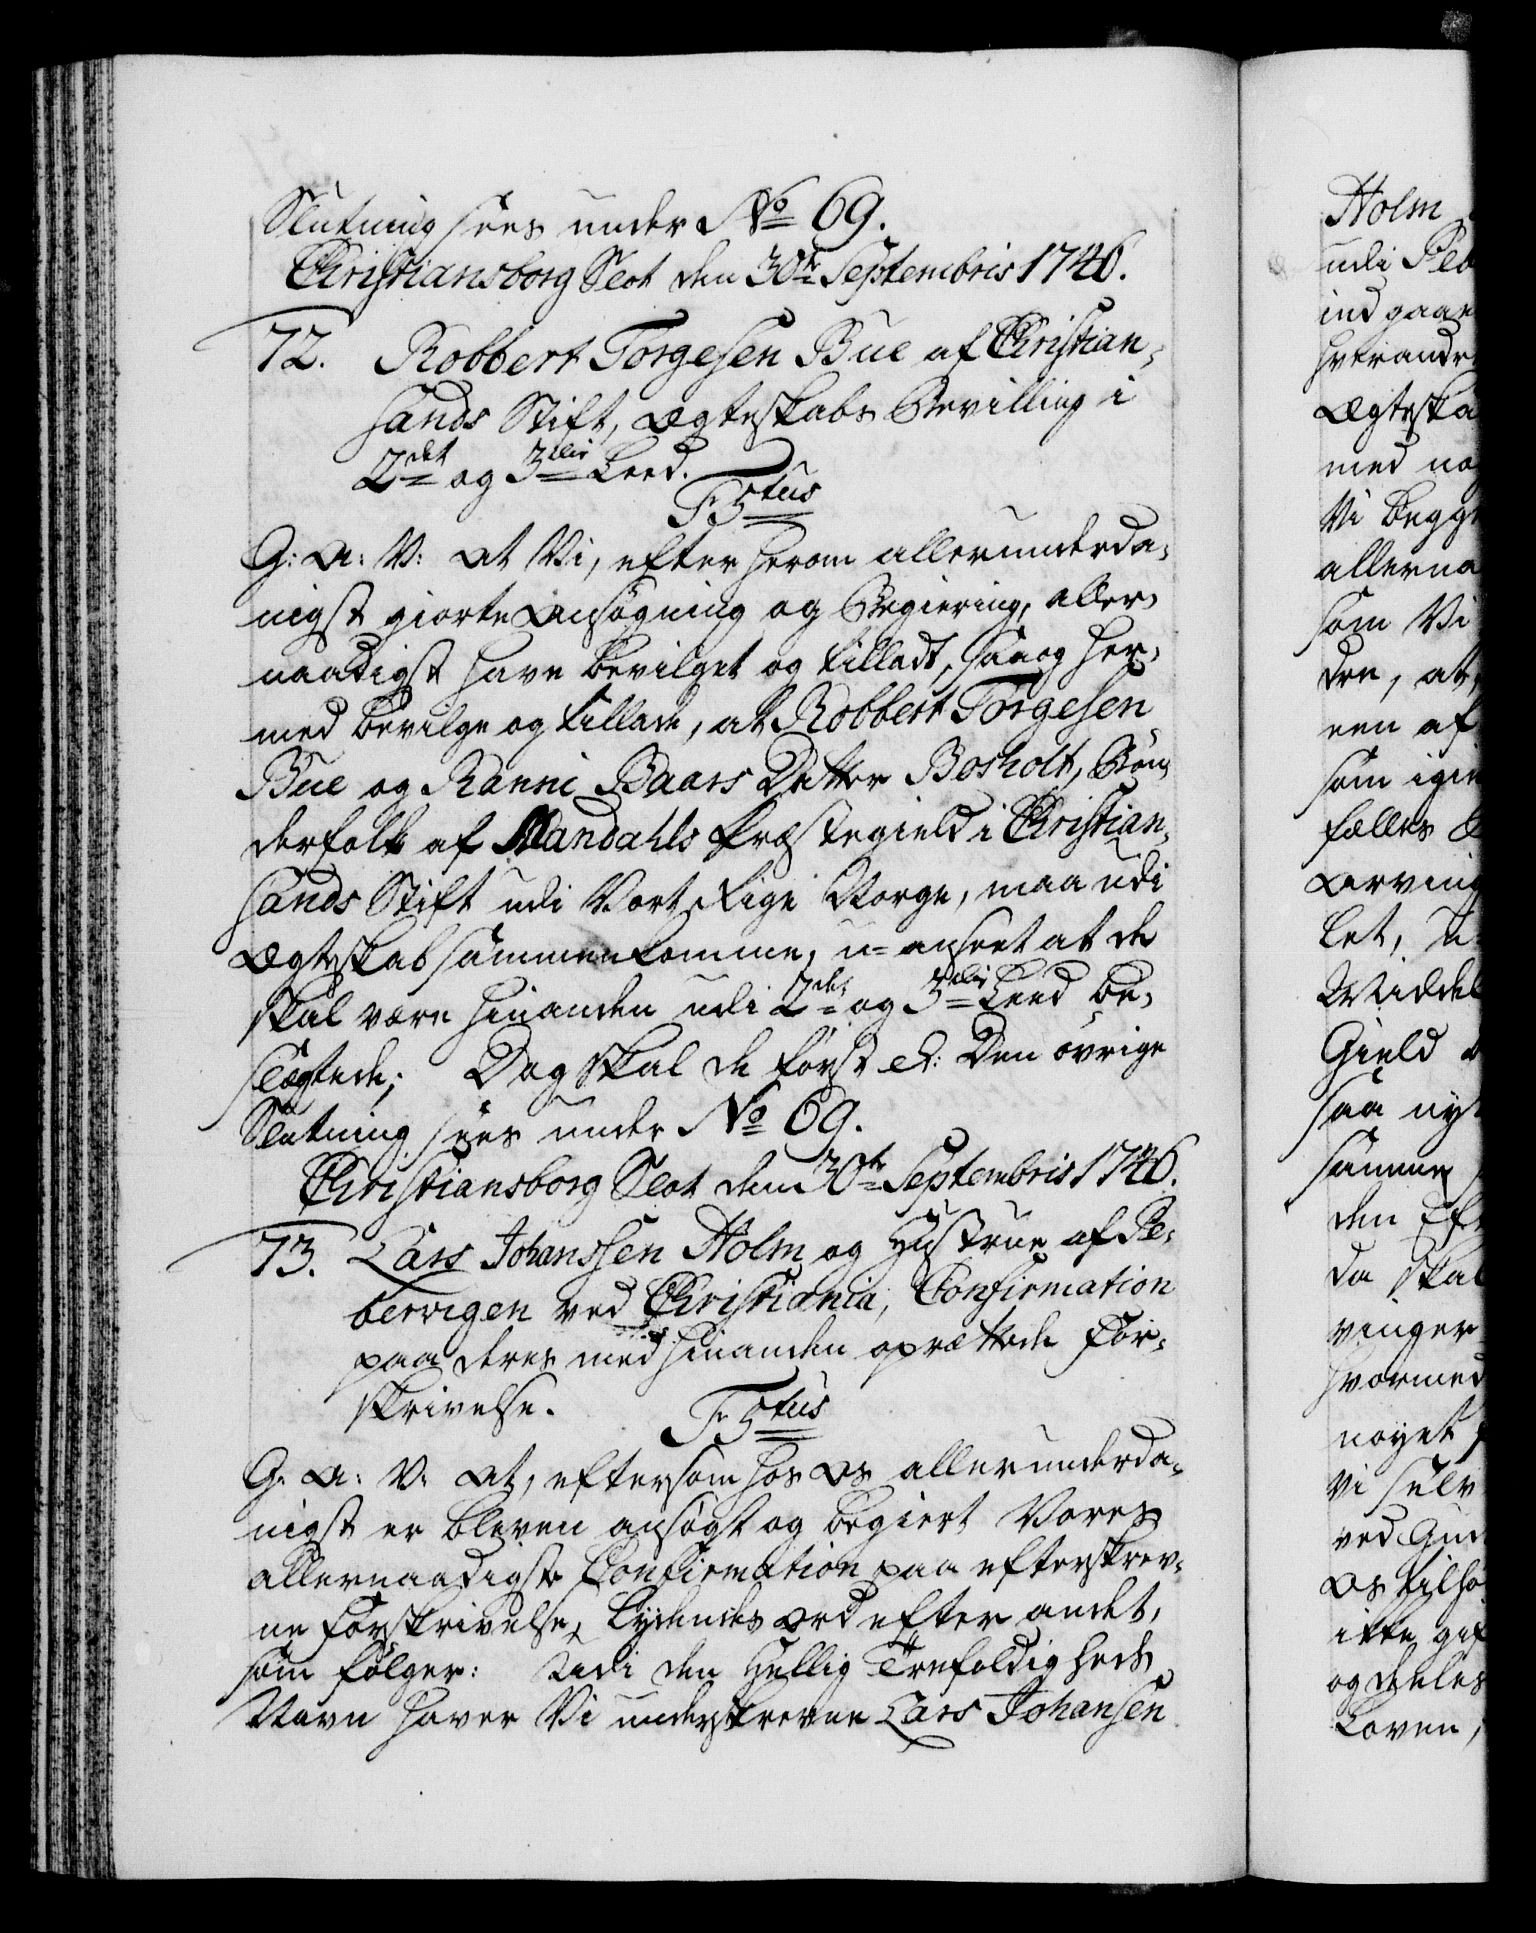 Slutning sees under No 69.
Christiansborg Slot den 30te Septembris 1746.
72. Robbert Torgesen Bue af Christian-
sands Stift, Ægteskabs Bevilling i
2det og 3die Leed.
F 5tus
G: A: V: At Vi, efter herom allerunderda-
nigst giorte Ansøgning og Begiering, aller-
naadigst have bevilget og tilladt, saa og her-
med bevilge og tillade, at Robbert Torgesen
Bue og Ranni Baars Datter Bosholt, Bøn-
derfolk af Mandahls Præstegield i Christian-
sands Stift udi Vort Rige Norge, maa udi
Ægteskab sammenkomme, u-anseet at de
skal være hinanden udi 2det og 3die Leed be-
slægtede; Dog skal de først etc: Den øvrige
Slutning sees under No 69.
Christiansborg Slot den 30te Septembris 1746.
73. Lars Johanssen Holm og Hustrue af Pe-
bervigen ved Christiania, Confirmation
paa deres med hinanden oprættede For-
skrivelse.
F 5tus
G: A: V: At, eftersom hos Os allerunderda-
nigst er bleven ansøgt og begiert Vores
allernaadigste Confirmation paa efterskrev-
ne Forskrivelse, lydendes Ord efter andet,
som følger: Udi den Hellig Trefoldigheds
Navn haver Vi underskrevne Lars Johansen
Holm
udi Peb
ind gaae
hverandre
Ægteska
med no
Vi begge
allerna
som Vi
den, at
een af
som igien
fælles
Arving
let, u-
Middel
Gield
saa nyt
samme
den Eft
da skal
vinger
hvormed
nøyet
Vi selv
ved Gud
Os tilhø
ikke gif
og deeles
Loven,